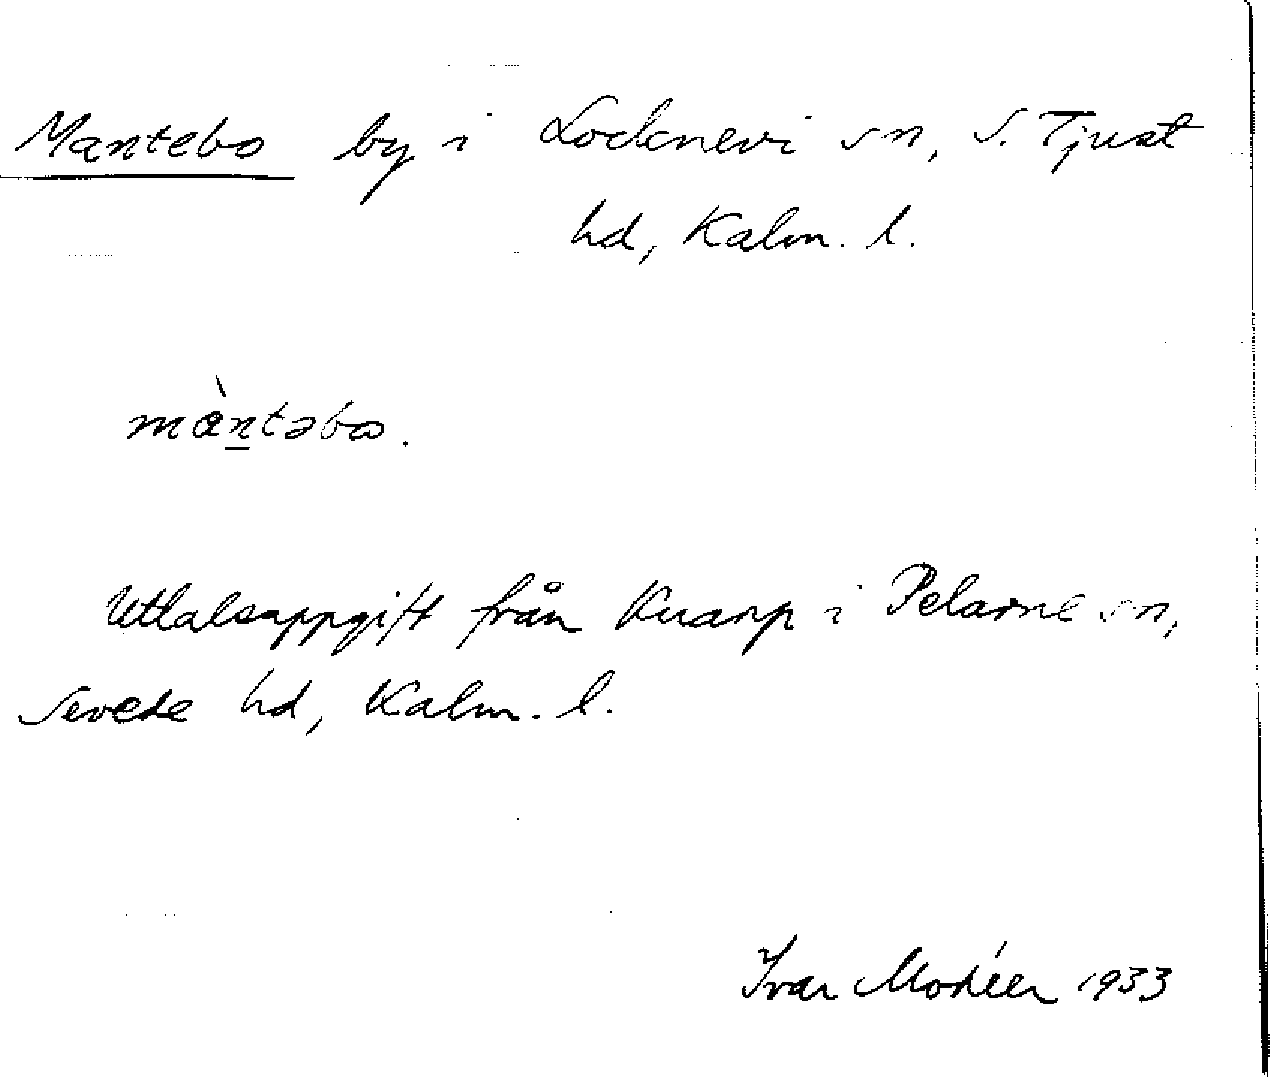 Mantebo by i Locknevi sn, S. Tjust
hd, Kalm. l.
màntəbω.
Uttalsuppgift från Kuarp i Pelarne sn,
Sevede hd, Kalm. l.
Ivar Modéer 1933